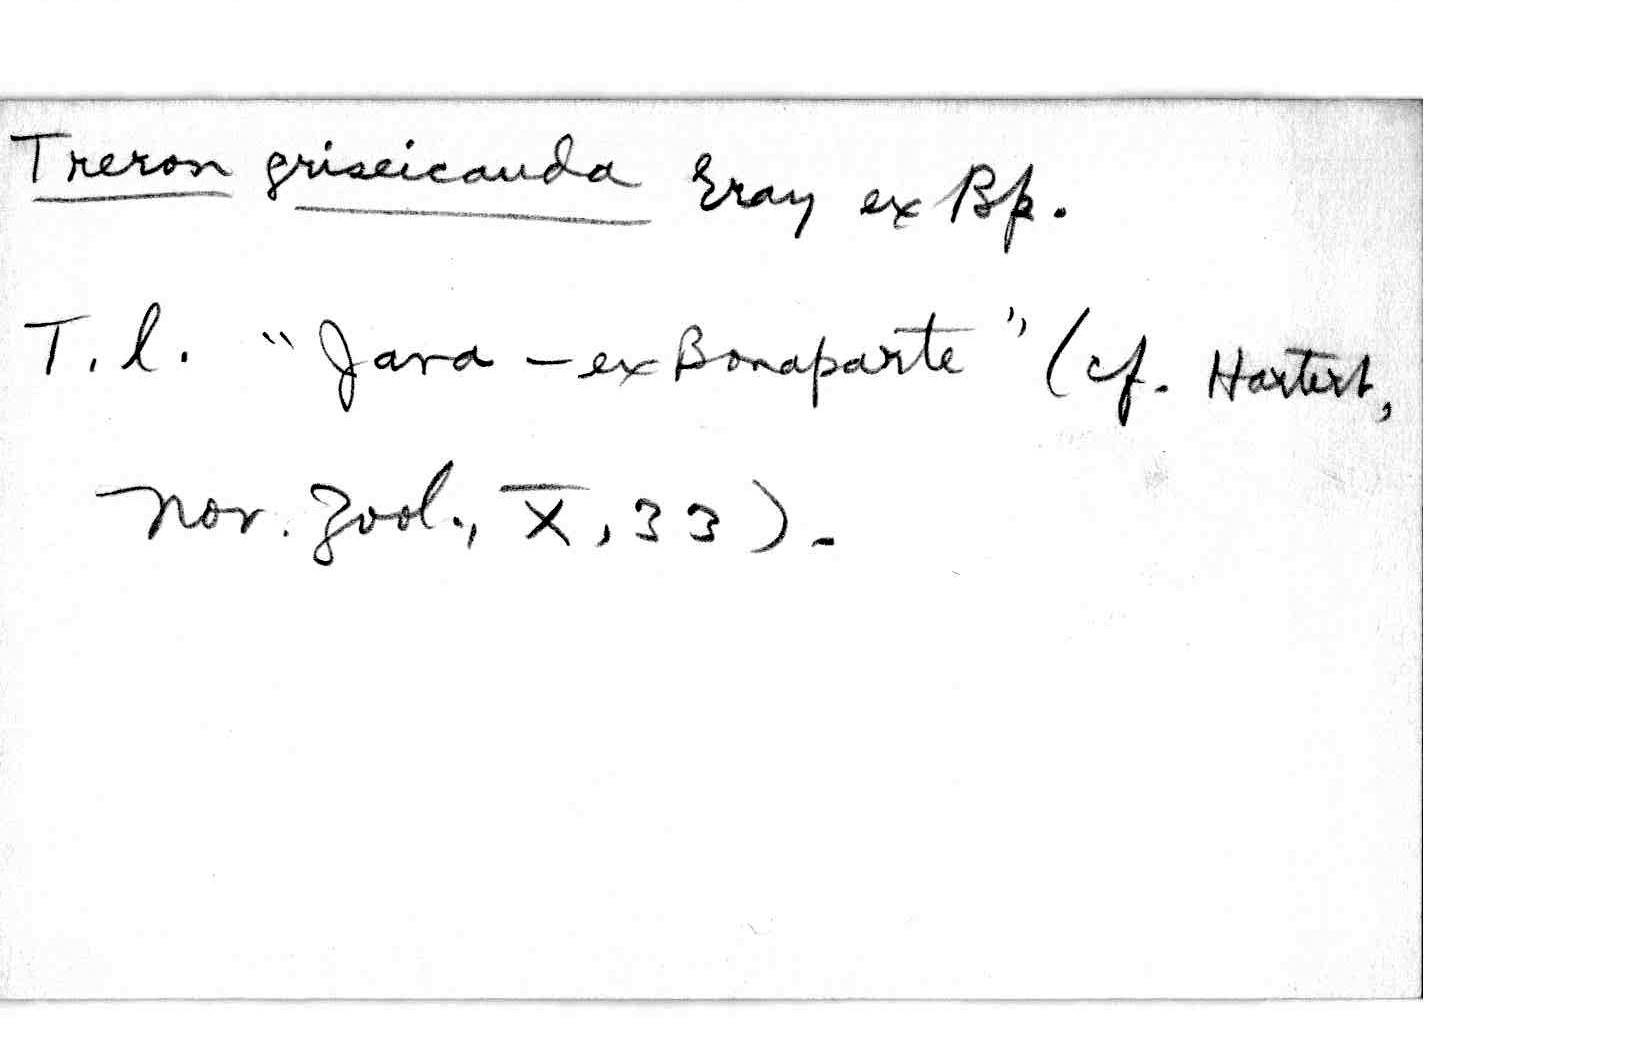 Treron griseicauda Gray ex Bp.
T. l. "Java – ex Bonaparte" (cf. Hartert,
Nov. Zool., X, 33).